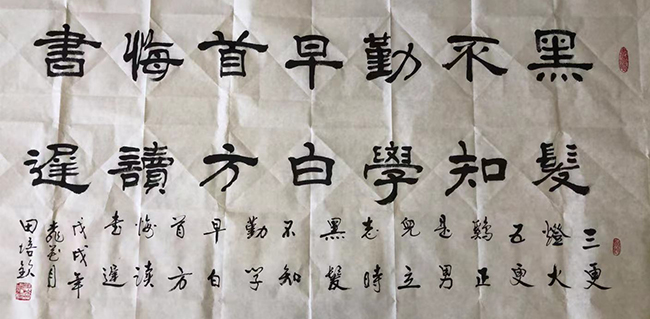 黑髮
不知
勤學
早白
首方
悔讀
書遲
三更
燈火
五更
鷄正
是男
兒立
志時
黑髮
不知
勤学
早白
首方
悔读
书遲
戊戌年
月
田培